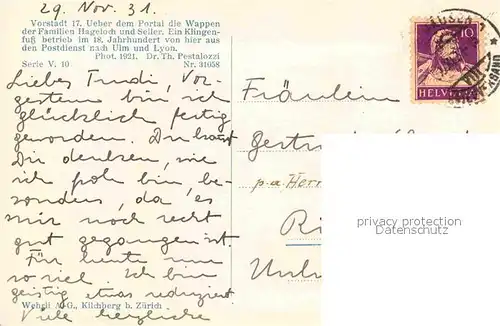 29. Nov. 31.
Vorstadt 17. Ueber dem Portal die Wappen
der Familien Hageloch und Seiler. Ein Klingen-
fuß betrieb im 18. Jahrhundert von hier aus
den Postdienst nach Ulm und Lyon.
Phot. 1921. Dr. Th. Pestalozzi
Serie V. 10 Nr. 31058
Liebes Trudi, Vor-
gestern bin ich
glücklich fertig
geworden. Du kannst
Dir denken, wie
ich froh bin, be-
sonders, da es
mir noch recht
gut gegangen ist.
Für heute nur
so viel. Ich bin
geistig etwas reduziert
Viele herzliche
Wehrli A.-G., Kilchberg b. Zürich
10
HELVETIA
Fräulein
Gertrud
p.a. Herr
privacy protection
Datenschutz